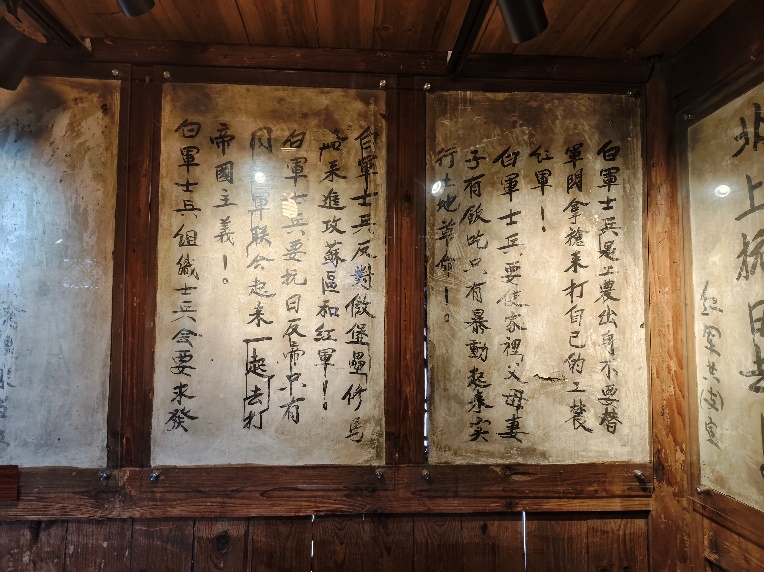 北上抗日去
紅軍共政宣
白軍士兵是工農出身不要替
軍閥拿槍來打自己的工農
紅軍！
白軍士兵要使家裡父母妻
子有飯吃只有暴動起來实
行土地革命！。
白軍士兵反對做堡壘修馬
路來進攻蘇區和紅軍！
白軍士兵要抗日反帝只有
同紅軍联合起来一起去打
帝國主義！。
白軍士兵組織士兵会要求發